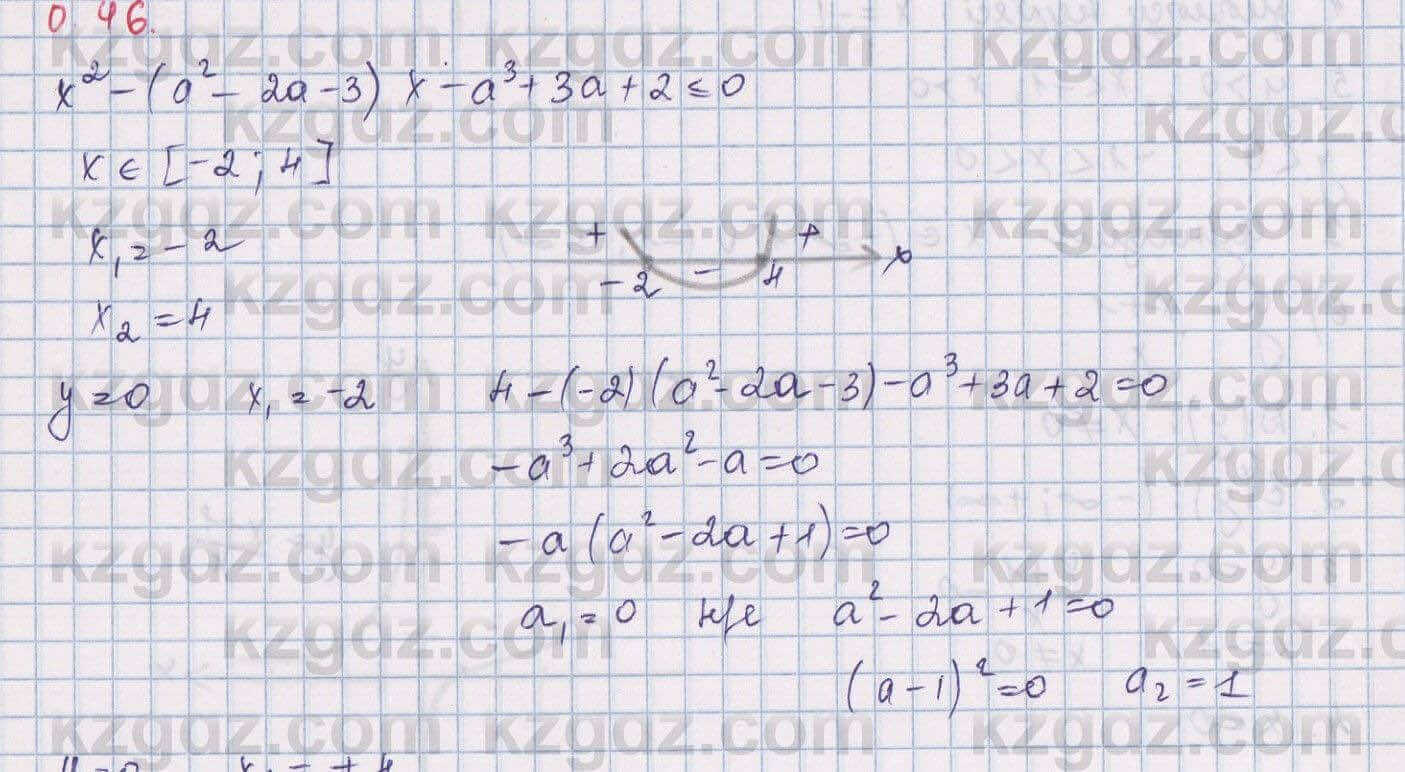 0.46.
x² - (a² - 2a - 3) x - a³ + 3a + 2 ≤ 0
x ∈ [-2; 4]
x₁ = -2
+ - + x
-2 4
x₂ = 4
y = 0 x₁ = -2 4 - (-2)(a² - 2a - 3) - a³ + 3a + 2 = 0
-a³ + 2a² - a = 0
-a (a² - 2a + 1) = 0
a₁ = 0 не/е a² - 2a + 1 = 0
(a - 1)² = 0 a₂ = 1
kzgdz.com